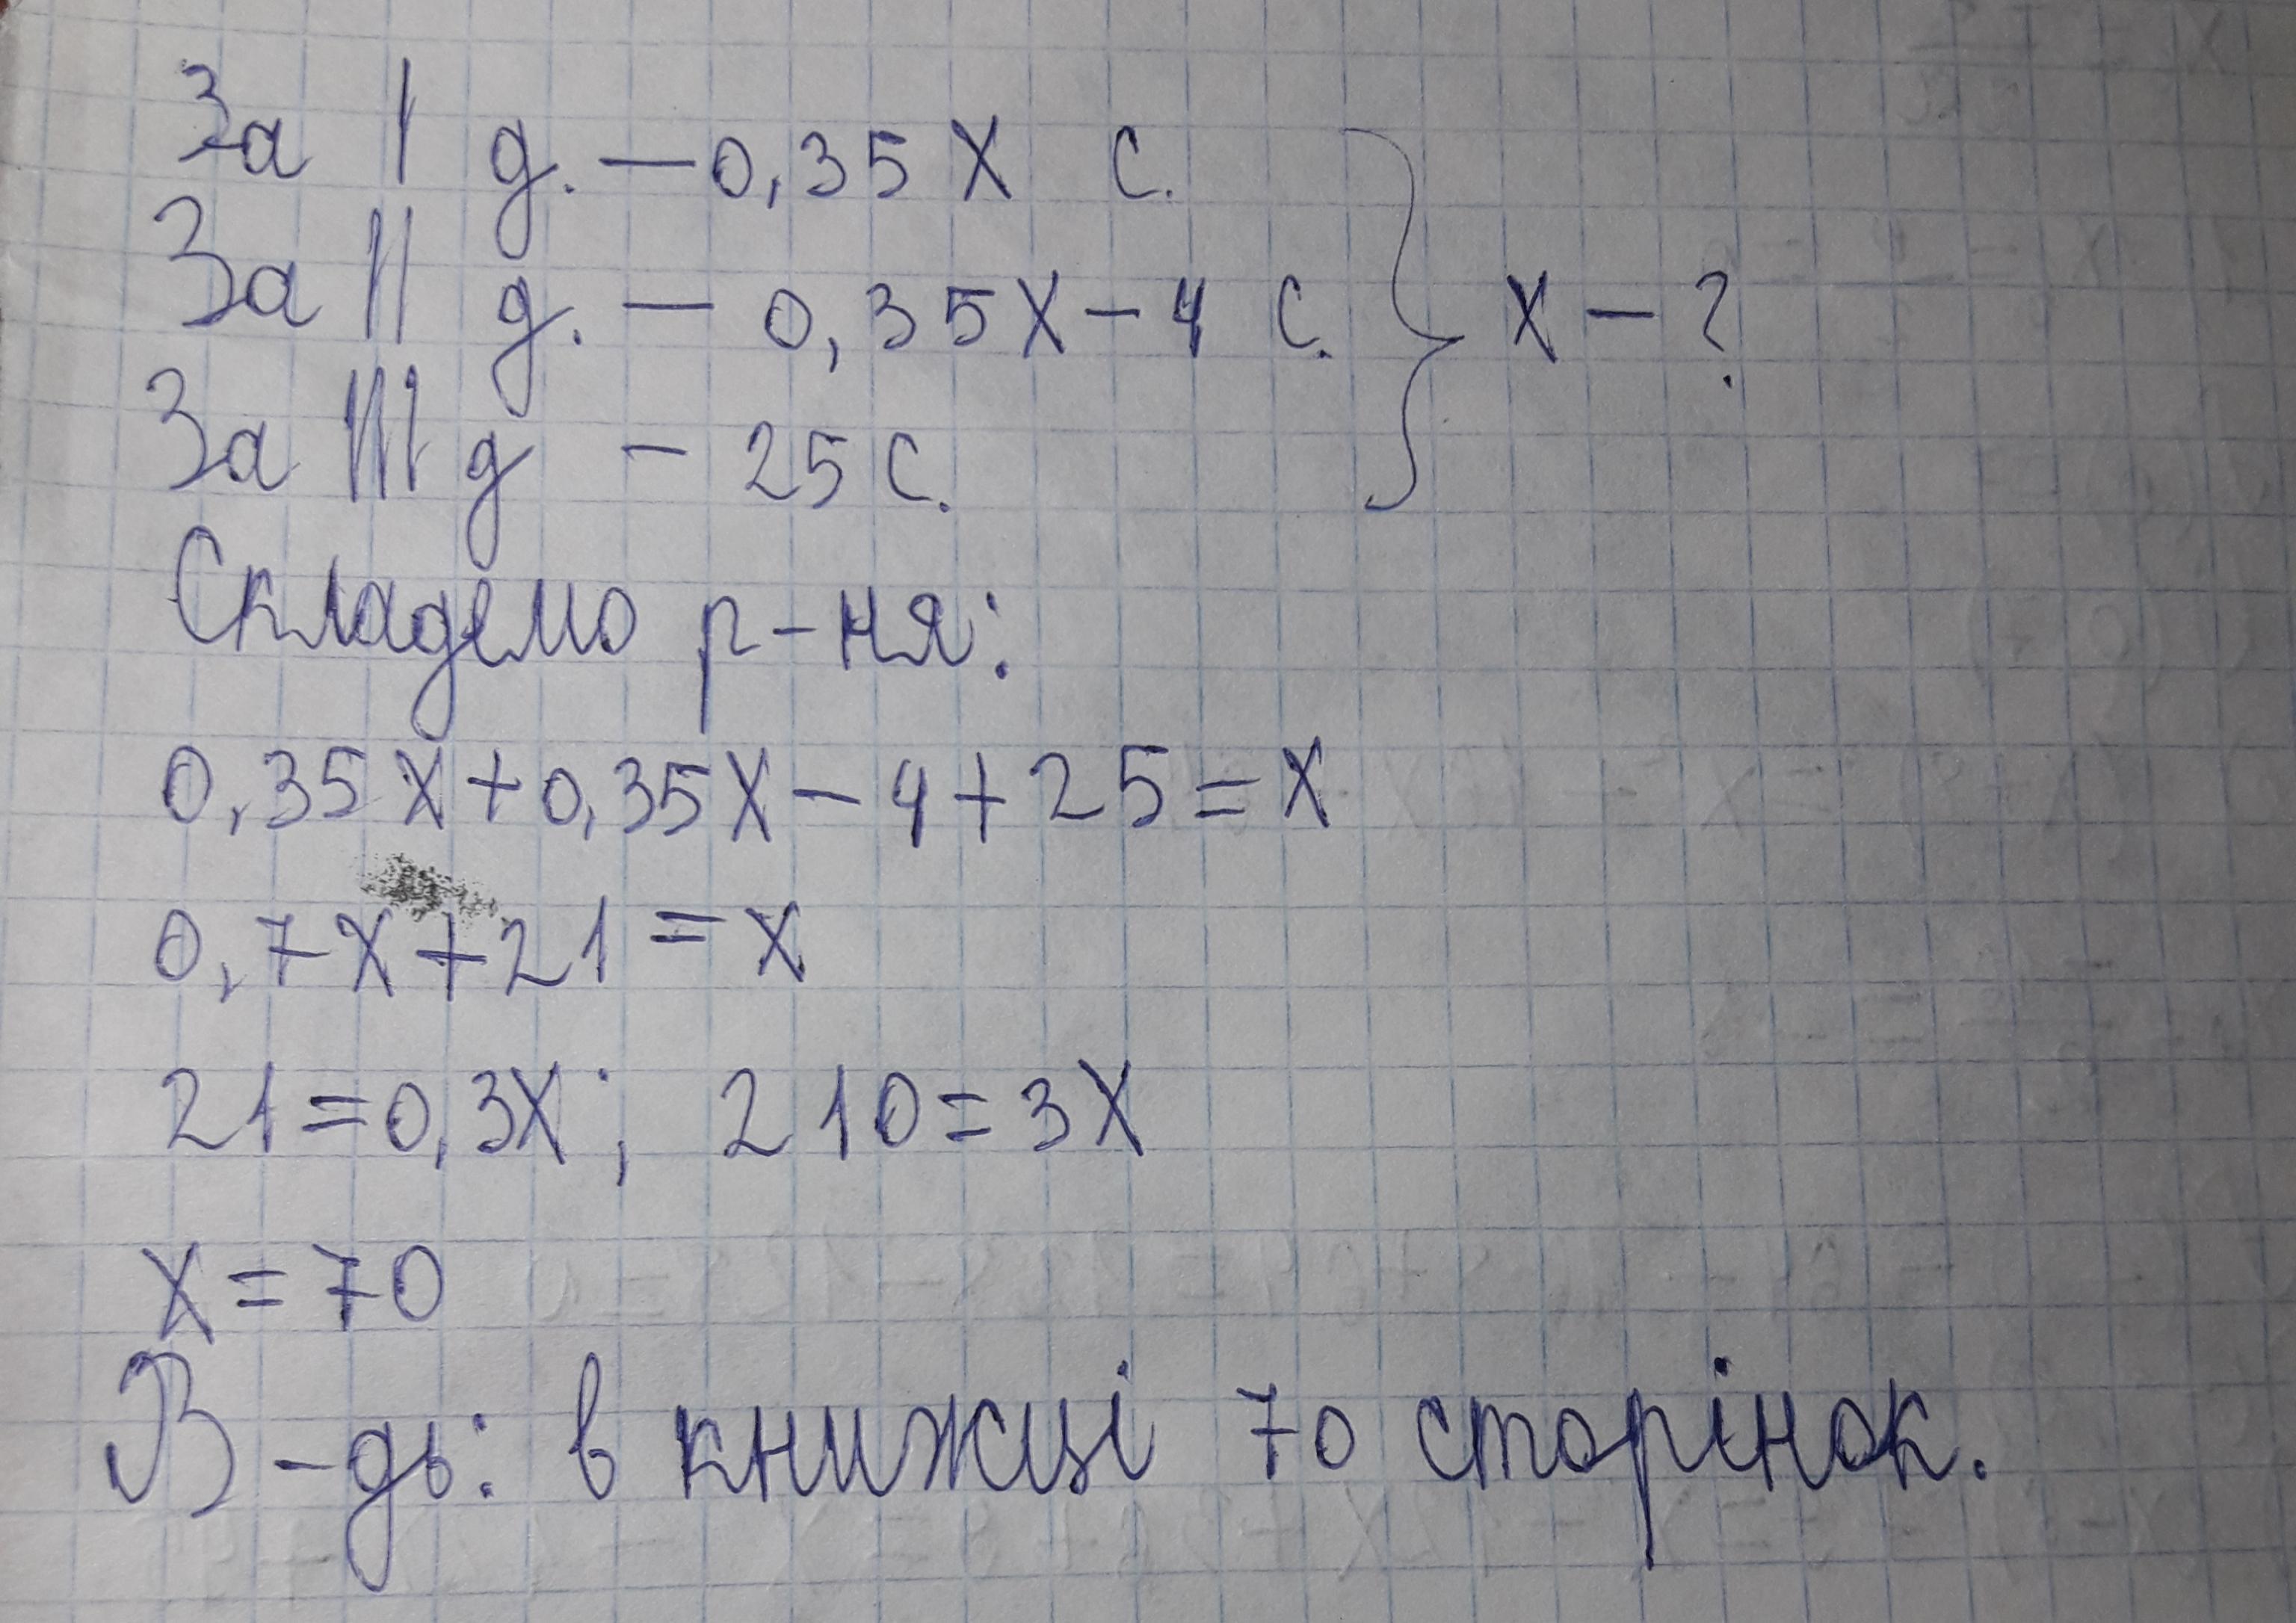 За I д. — 0,35x с.
За II д. — 0,35x - 4 с. } x - ?
За III д - 25 с.
Складемо р-ня:
0,35x + 0,35x - 4 + 25 = x
0,7x + 21 = x
21 = 0,3x; 210 = 3x
x = 70
В-дь: в книжці 70 сторінок.